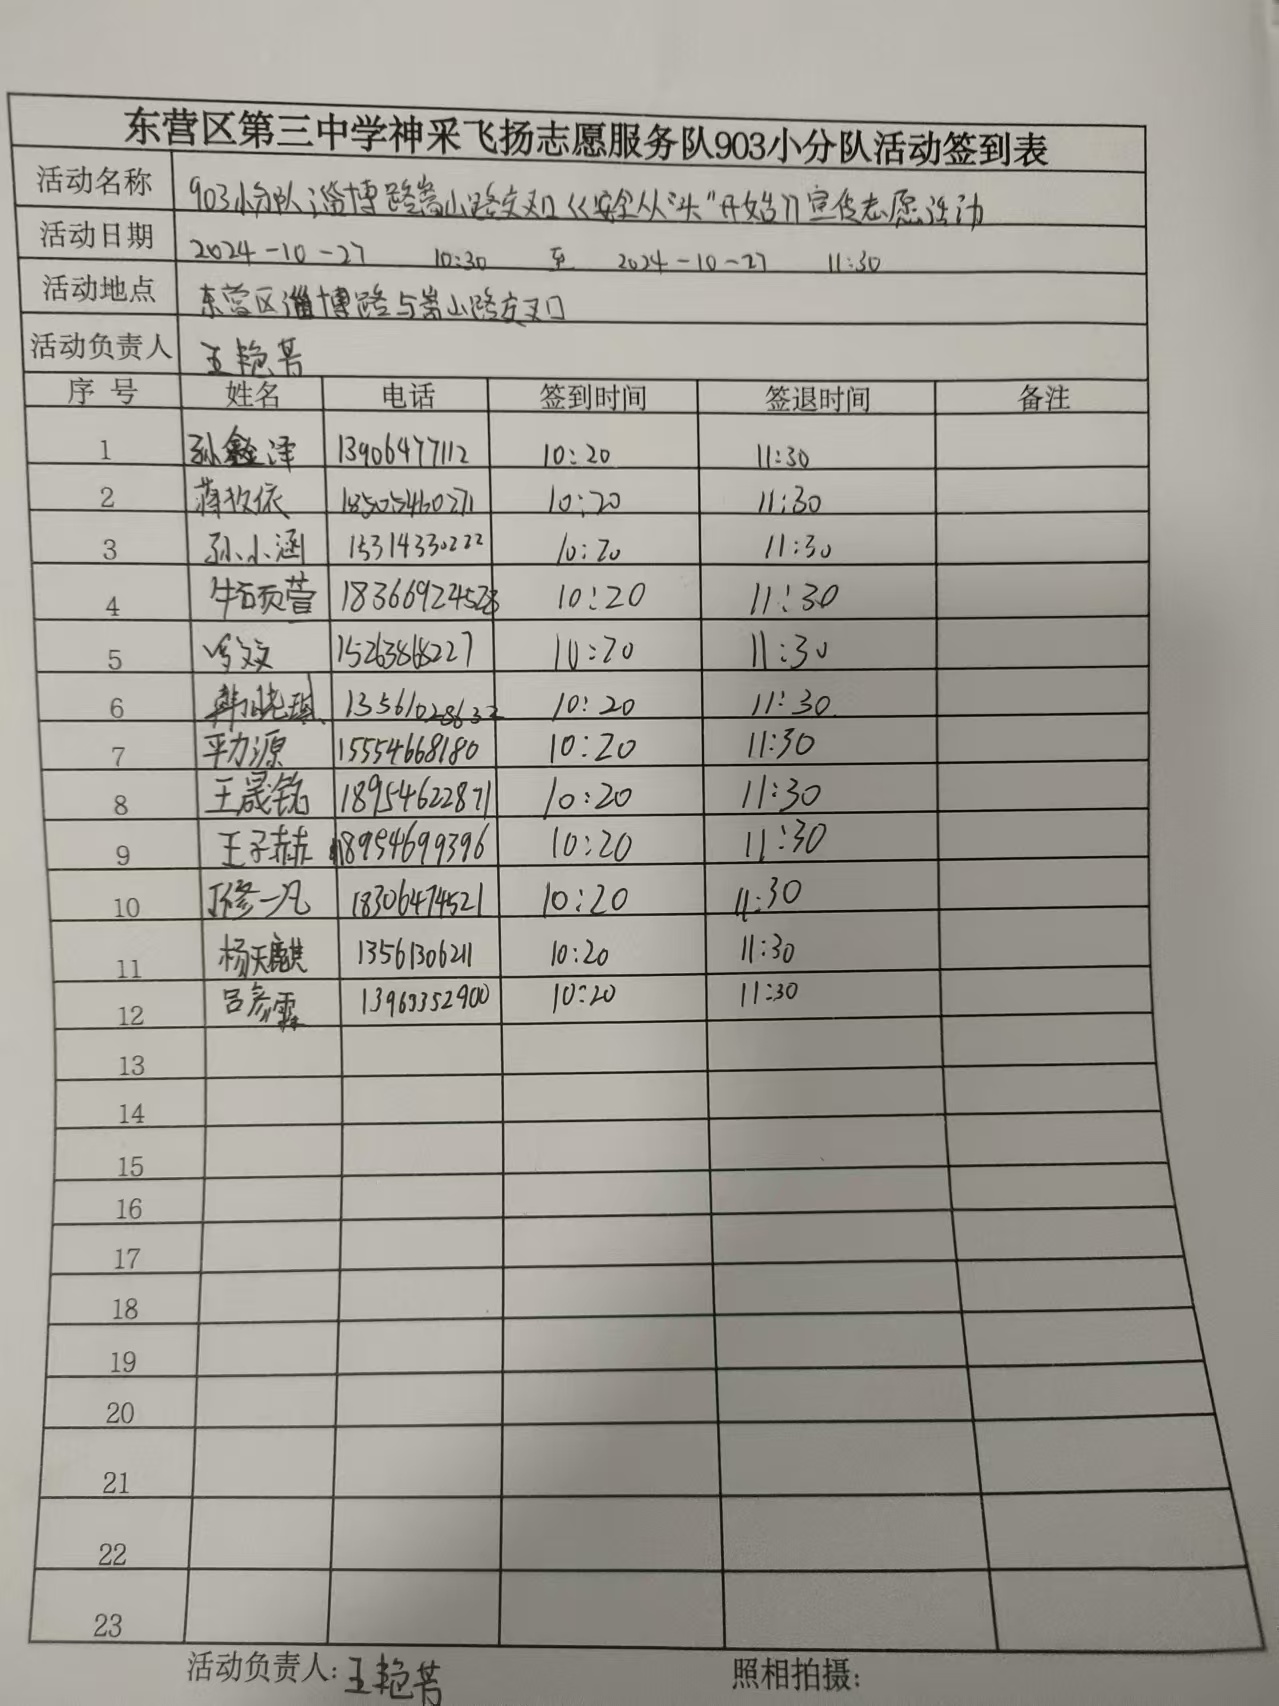 东营区第三中学神采飞扬志愿服务队903小分队活动签到表
活动名称 903小分队淄博路嵩山路交叉口《安全从"头"开始》宣传志愿活动
活动日期 2024-10-27 10:30 至 2024-10-27 11:30
活动地点 东营区淄博路与嵩山路交叉口
活动负责人 王艳芳
序号 姓名 电话 签到时间 签退时间 备注
1 孙鑫泽 13906477112 10:20 11:30
2 蒋牧依 18505460271 10:20 11:30
3 孙小涵 15314330222 10:20 11:30
4 18366924528 10:20 11:30
5 15263868227 10:20 11:30
6 韩晓琪 13561028632 10:20 11:30
7 平力源 15554668180 10:20 11:30
8 王晟铭 18954622871 10:20 11:30
9 王子赫 18954699396 10:20 11:30
10 修一凡 18306474521 10:20 11:30
11 杨天麒 13561306211 10:20 11:30
12 吕彦霖 13963352900 10:20 11:30
13
14
15
16
17
18
19
20
21
22
23
活动负责人:王艳芳 照相拍摄: